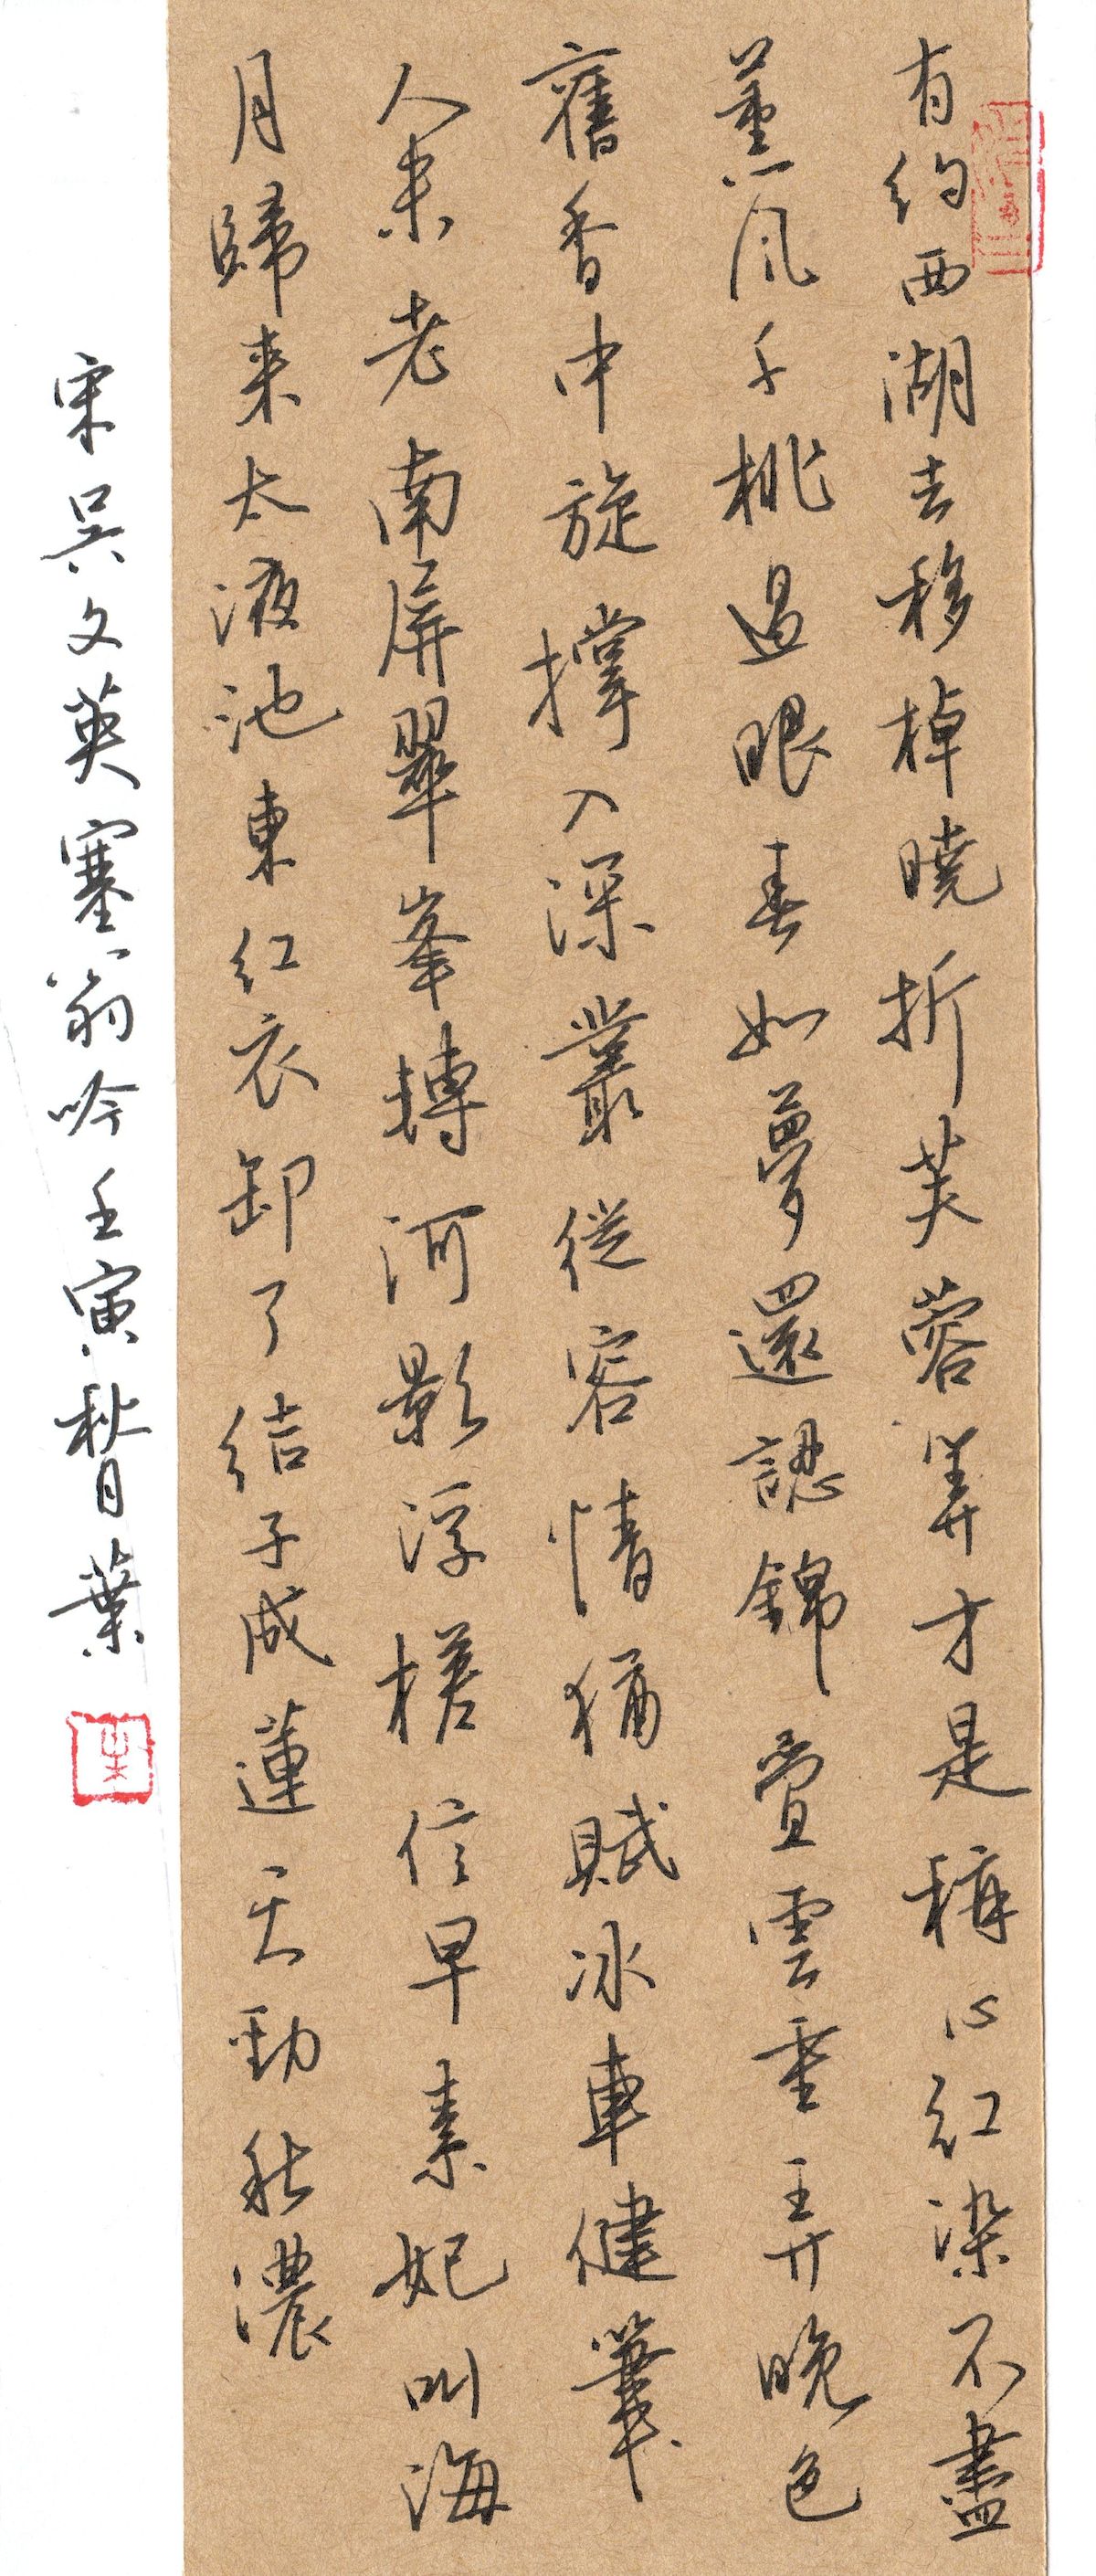 有約西湖去移棹曉折芙蓉筭才是稱心紅染不盡
薰風千桃過眼春如夢還認錦疊雲重弄晚色
舊香中旋撐入深叢從容情猶賦冰車健筆
人未老南屏翠峯摶河影浮槎信早素妃叫海
月歸来太液池東紅衣卸了結子成蓮天勁秋濃
宋吳文英塞翁吟壬寅秋月葉